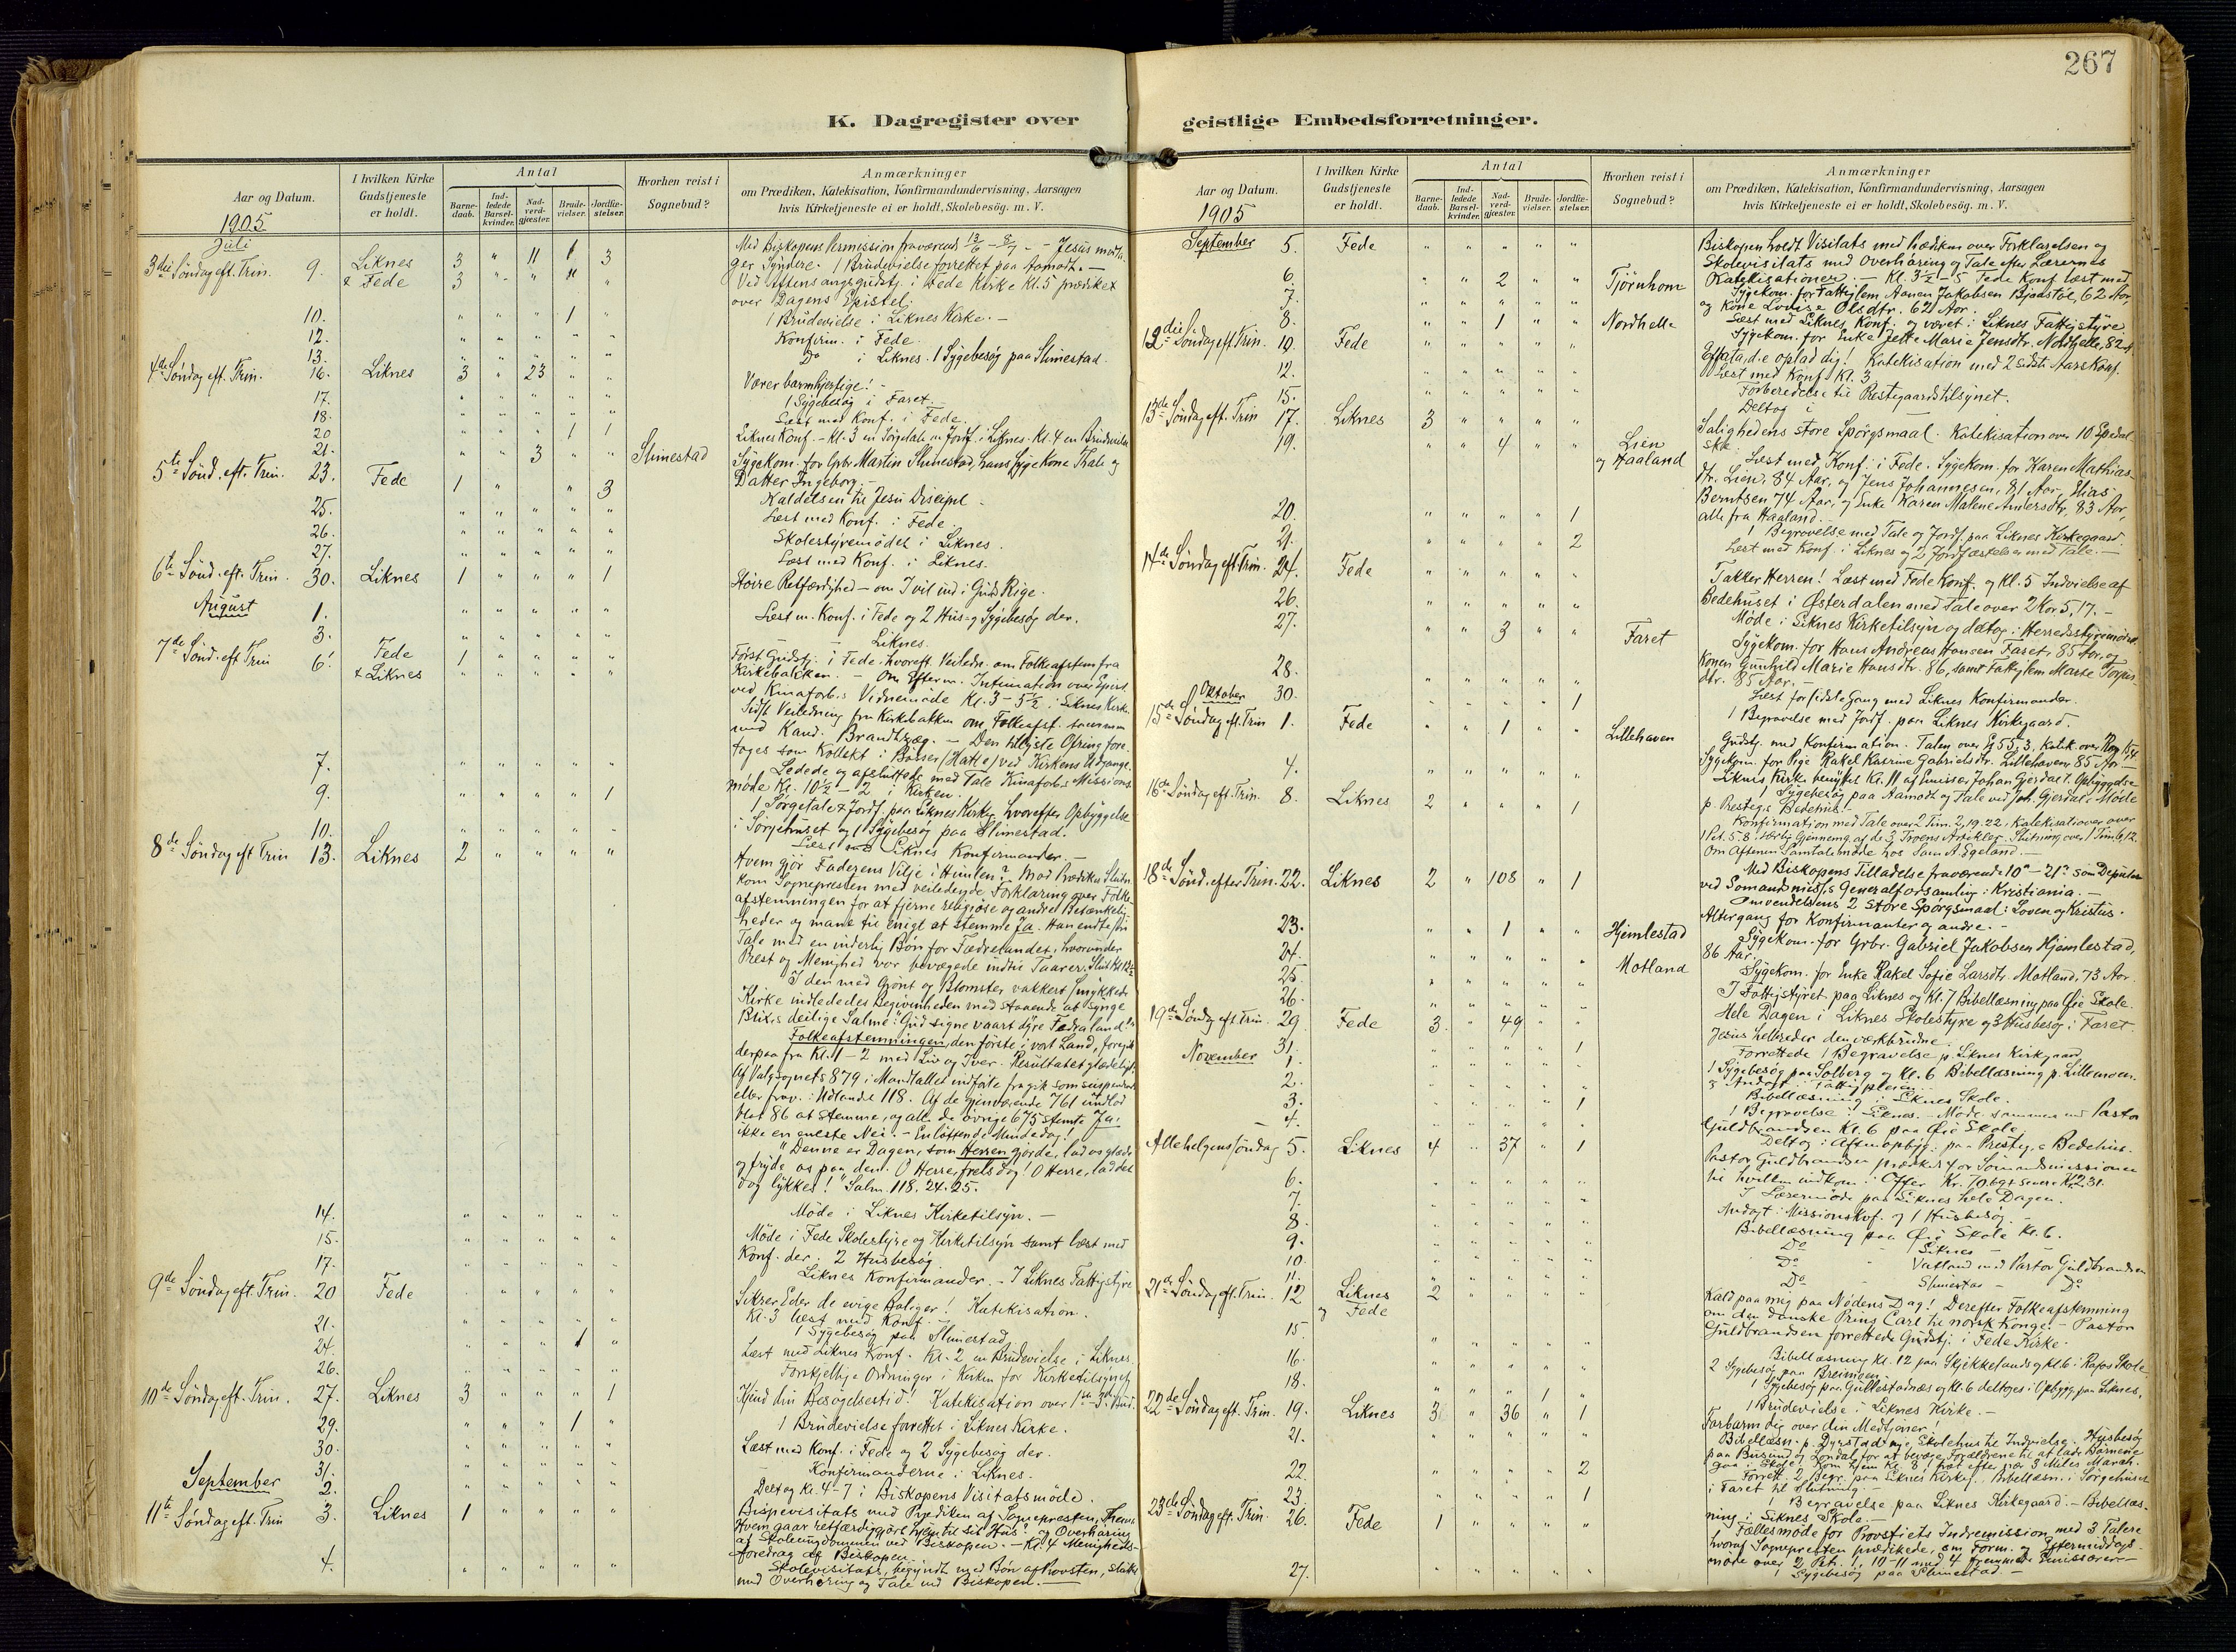 267
K. Dagregister over
geistlige Embedsforretninger.
Aar og Datum.
1905
I hvilken Kirke
Gudstjeneste
er holdt.
Antal
Barne-
daab.
Ind-
ledede
Barsel-
kvinder.
Nad-
verd-
gjæster.
Brude-
vielser.
Jordfæ-
stelser.
Hvorhen reist i
Sognebud?
Anmærkninger
om Prædiken, Katekisation, Konfirmandundervisning, Aarsagen
hvis Kirketjeneste ei er holdt, Skolebesög. m. V.
Juli
3die Söndag eft. Trin. 9. Liknes 3 " 11 1 3
& Fede 3 " " " "
Med Biskopens Permission fraværende 13/6 - 8/7. - Jesus modta-
ger Syndere. 1 Brudevielse forrettet paa Aamodt. -
Ved Aftensangsgudstj. i Fede Kirke Kl. 5 prædiket
over Dagens Epistel.
10. " " " 1 " 1 Brudevielse i Liknes Kirke. -
12. " " " " " Konfirm. i Fede.
13. " " " " " Do i Liknes. 1 Sygebesög paa Slimestad.
4de Söndag eft. Trin. 16. Liknes 3 " 23 " " Værer barmhjertige! -
17. " " " " " 1 Sygebesög i Faret. -
18. " " " " " Læst med Konf. i Fede.
20 " " " 1 1 Liknes Konf. - Kl. 3 en Sörgetale m. Jordf. i Liknes. Kl. 4 en Brudevielse
21. " " 3 " " Slimestad Sygekom. for Grbr. Martin Slimestad, hans syge Kone Thale og
Datter Ingeborg. -
5te Sönd. eft. Trin. 23. Fede 1 " " 3 Kaldelsen til Jesu Discipel -
25. " " " " " Læst med Konf. i Fede.
26. " " " " " Skolestyremödet i Liknes.
27. " " " " " Læst med Konf. i Liknes.
6te Sönd. eft. Trin. 30. Liknes 1 " " " 1 Höire Retfærdighed - om I vil ind i Guds Rige.
August 1. " " " " " Læst m. Konf. i Fede og 2 Hus- og Sygebesög der.
3. " " " " " Liknes.
7de Sönd. eft Trin 6. Fede 1 " " " "
& Liknes " " " " "
Först Gudstj. i Fede, hvoreft. Veiledn. om Folkeafstem fra
Kirkebakken. - Om Efterm. Intimation over Epist.
ved Kinaforb.s Vidnemöde Kl. 3 - 5½ i Liknes Kirke.
Sidst Veiledning fra Kirkebakken om Folkeafst. sammen
med Kand. Brandtzæg. - Den tillyste Ofring fore-
tages som Kollekt i Bösser (Hatte) ved Kirkens Udgange.
7. " " " " " Ledede og afsluttede med Tale Kinaforb.s Missions-
möde Kl. 10½ - 2 i Kirken.
9. " " " " 1 1 Sörgetale & Jordf. paa Liknes Kirkeg. hvorefter Opbyggelse
i Sörgehuset og 1 Sygebesög paa Slimestad.
10. " " " " " Læst med Liknes Konfirmander. -
8de Söndag eft Trin 13. Liknes 2 " " " "
Hvem gjör Faderens Vilje i Himlen? Mod Prædikes Slutn.
kom Sognepresten med veiledende Forklaring over Folke-
afstemningen for at fjerne religiöse og andre Betænkelig-
heder og mane til enigt at stemme Ja. Han endte sin
Tale med en inderlig Bön for Fædrelandet, hvorunder
Prest og Menighed var bevægede indtil Taarer. Slut Kl 12½
I den med Grönt og Blomster vakkert smykkede
Kirke indlededes Begivenheden med staaende at synge
Blix's deilige Salme: "Gud signe vaart dyre Fedraland".
Folkeafstemningen, den förste i vort Land, foregik
derpaa fra Kl. 11 - 2 med Liv og Iver. Resultatet glædeligt.
Af Valgsognets 879 i Mandtallet indförte fragik som suspenderet
eller frav. i Udlandet 118. Af de gjenværende 761 undlod
blot 86 at stemme, og alle de övrige 675 stemte Ja,
ikke en eneste Nei. - En löftende Mindedag!
"Denne er Dagen, som Herren gjorde, lad os glæde
og fryde os paa den. O Herre, frels dog! O Herre, lad det
dog lykkes! " Salm. 118, 24-25.
14. " " " " " Möde i Liknes Kirketilsyn. -
15. " " " " " Möde i Fede Skolestyre og Kirketilsyn samt læst med
Konf. der. 2 Husbesög
17. " " " " " Liknes Konfirmander. - I Liknes Fattigstyre
9de Söndag eft. Trin. 20 Fede " " " " Sikrer Eder de evige Boliger! Katekisation.
Kl. 3 læst med Konf. -
21. " " " " " 1 Sygebesög paa Slimestad.
24. " " " 1 " Læst med Liknes Konf. Kl. 2 en Brudevielse i Liknes.
26. " " " " " Forskjellige Ordninger i Kirken for Kirketilsynet
10de Söndag eft. Trin. 27. Liknes 3 " " " 1 Kjend din Besögelsestid! Katekisation over 1ste - 3die Bud.
29. " " " 1 " 1 Brudevielse forrettet i Liknes Kirke.
30. " " " " " Læst med Konf. i Fede og 2 Sygebesög der.
31. " " " " " Konfirmanderne i Liknes.
September 2. " " " " " Deltog Kl. 4-7 i Biskopens Visitatsmöde.
11te Söndag eft. Trin 3. Liknes 1 " " " "
Bispevisitats med Prædiken af Sognepresten, Thema:
Hvem gaar retfærdiggjort hjem til sit Hus? og Overhöring
af Skoleungdommen ved Biskopen. - Kl. 4 Menigheds-
foredrag af Biskopen.
4. " " " " " Skolevisitats, begyndt med Bön af Provsten, sluttet
med Overhöring og Tale ved Biskopen. -
Aar og Datum.
1905
I hvilken Kirke
Gudstjeneste
er holdt.
Antal
Barne-
daab.
Ind-
ledede
Barsel-
kvinder.
Nad-
verd-
gjæster.
Brude-
vielser.
Jordfæ-
stelser.
Hvorhen reist i
Sognebud?
Anmærkninger
om Prædiken, Katekisation, Konfirmandundervisning, Aarsagen
hvis Kirketjeneste ei er holdt, Skolebesög. m. V.
September 5. Fede " " " " " Biskopen holdt Visitats med Prædiken over Forklarelsen og
Skolevisitats med Overhöring og Tale efter Lærernes
Katekisationer. - Kl. 3½ - 5 Fede Konf. læst med
6. " " 2 " " Tjörnhom Sygekom. for Fattiglem Aanen Jakobsen Bjodstöl, 62 Aar,
og Kone Lovise Olsdtr. 62 Aar.
7. " " " " " Læst med Liknes Konf. og været i Liknes Fattigstyre
8. " " 1 " " Nordhelle Sygekom. for Enke Jette Marie Jensdtr. Nordhelle, 82 A.
12te Söndag eft Trin. 10. Fede " " " " " Effata, d.e. oplad dig! Katekisation med 2 sidste Aars Konf.
Læst med Konf. Kl. 3
12. " " " " " Forberedelse til Prestegaardstilsynet.
15. " " " " " Deltog i
13de Söndag eft. Trin 17. Liknes 3 " " " " Salighedens store Spörgsmaal. Katekisation over 10 Spedal-
ske.
19. " " 4 " " Lien
og Haaland
Læst med Konf. i Fede. Sygekom. for Karen Mathias-
dtr. Lien, 84 Aar, og Jens Johannesen, 81 Aar, Elias
Berntsen 74 Aar, og Enke Karen Malene Andersdtr. 83 Aar,
alle fra Haaland.
20. " " " " 1 1 Begravelse med Tale og Jordf. paa Liknes Kirkegaard
21. " " " " 2 Læst med Konf. i Liknes og 2 Jordfæstelser med Tale. -
14de Söndag eft Trin. 24. Fede " " " " " Takker Herren! Læst med Fede Konf. og Kl. 5 Indvielse af
Bedehuset i Østerdalen med Tale over 2 Kor 5, 17. -
26. " " " " " Möde i Liknes Kirketilsyn og deltog i Herredsstyremödet
27. " " 3 " " Faret Sygekom. for Hans Andreas Hansen Faret, 85 Aar, og
Konen Gunhild Marie Hansdtr. 86, samt Fattiglem Marte Torjus-
dtr. 85 Aar. -
28. " " " " " Læst for sidste Gang med Liknes Konfirmander.
30. " " " " 1 1 Begravelse med Jordf. paa Liknes Kirkegaard.
Oktober
15de Söndag eft. Trin 1. Fede " " 1 " " Lillehaven Gudstj. med Konfirmation. Talen over Es 55, 3, Katek. over
Sygekom. for Pige Rakel Katrine Gabrielsdtr. Lillehaven 85 Aar -
Liknes Kirke benyttet Kl. 11 af Emissær Johan Gjerdal t. Opbyggelse
4. " " " " " 1 Sygebesög paa Aamodt og Tale ved Joh. Gjerdals Möde
p. Presteg.s Bedehus. -
16de Söndag eft. Trin. 8. Liknes 2 " " " 1 Konfirmation med Tale over 2 Tim. 2, 19-22, Katekisation over
1 Pet. 5. 8, særlig Gjennemg. af de 3 Troens Artikler. Slutning over 1 Tim. 6, 12.
Om Aftenen Samtalemöde hos Sam A. Egeland. -
Med Biskopens Tilladelse fraværende 10de - 21de som Deputeret
ved Sömandsmiss.s Generalforsamling i Kristiania. -
18de Sönd. efter Trin. 22. Liknes 2 " 108 " 1 Omvendelsens 2 store Spörgsmaal: Loven og Kristus.
Altergang for Konfirmanter og andre. -
23. " " 1 " " Hjemlestad Sygekom. for Grbr. Gabriel Jakobsen Hjemlestad,
86 Aar.
24. " " " " " Motland Sygekom. for Enke Rakel Sofie Larsdtr. Motland, 73 Aar.
25. " " " " " I Fattigstyret paa Liknes og Kl. 7 Bibellæsning paa Öie Skole.
26. " " " " " Hele Dagen i Liknes Skolestyre og 3 Husbesög i Faret
19de Söndag eft Trin. 29. Fede 3. " 49 " " Jesus helbreder den værkbrudne.
31. " " " " 1 Forrettede 1 Begravelse p. Liknes Kirkegaard
November 1. " " " " " 1 Sygebesög paa Solberg og Kl. 6 Bibellæsning p. Lillemoen.
og Andagt i Fattigpleien.
2. " " " " " Bibellæsning i Liknes Skole.
3. " " " " 1 1 Begravelse i Liknes. - Möde sammen med Pastor
Guldbrandsen Kl. 6 paa Öie Skole.
4. " " " " " Deltog i Aftenopbyg. paa Presteg.s Bedehus.
Allehelgenssöndag 5. Liknes 4 " 37 " 1 Pastor Guldbrandsen prædiket for Sömandsmissionen
til hvilken indkom i Offer Kr.
6. " " " " " I Læsermöde paa Liknes hele Dagen.
7. " " " " " Andagt i Missionskvf. og 1 Husbesög.
8. " " " " " Bibellæsning paa Öie Skole Kl. 6.
9. " " " " " Do - Liknes - -
10. " " " " " Do - Vatland med Pastor Guldbrandsen
11. " " " " " Do - Slimestad - Do
21de Söndag eft. Trin. 12 Liknes 2 " " " "
og Fede
Kald paa mig paa Nödens Dag! Derefter Folkeafstemning
om den danske Prins Carl til norsk Konge. - Pastor
Guldbrandsen forrettede Gudstj. i Fede Kirke.
15. " " " " " Bibellæsning Kl. 12 paa Skjekkeland og Kl. 6 i Rafos Skole.
16. " " " " " 2 Sygebesög paa Breimoen.
1 Sygebesög paa Gullestadnæs og Kl. 6 deltoges i Opbygg. paa Liknes.
18. " " " 1 " 1 Brudevielse i Liknes Kirke. -
22de Söndag eft. Trin. 19. Liknes 3 " 36 " 1 Forbarm dig over din Medtjener!
21. " " " " " Bibellæsn. p. Dyrstad nye Skolehus til Indvielse. Husbesög
paa Busund og Londal for at bevæge Forældrene til at lade Börnene
gaa i Skole. Kom hjem Kl. 8½ træt efter nær 3 Miles March.
22. " " " " 2 Forrett. 2 Begr. paa Liknes Kirkeg. Bibellæsn. i Sörgehuset
i Faret til Slutning. -
23. " " " " 1 1 Begravelse paa Liknes Kirkegaard. - Bibellæs-
ning i Liknes Skole. -
23de Söndag eft. Trin. 26. Fede 1 " " " " Fællesmöde for Provstiets Indremission med 3 Talere
hvoraf Sognepresten prædikede, om Form. og Eftermiddags-
möde over 2 Petr. 1, 10-11 med 4 fremmede Emissærer -
27. " " " " " 1 Sygebesög paa Slimestad. -